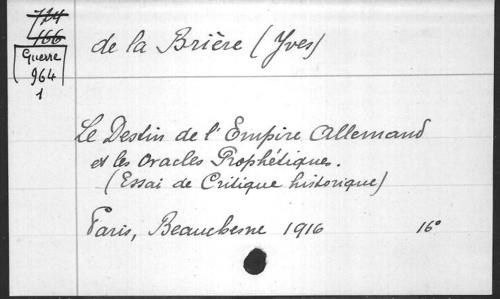 724
166
Guerre
964
1
de la Brière (Yves)
Le Destin de l'Empire Allemand
et les Oracles Prophétiques.
(Essai de Critique historique)
Paris, Beauchesne 1916 16°